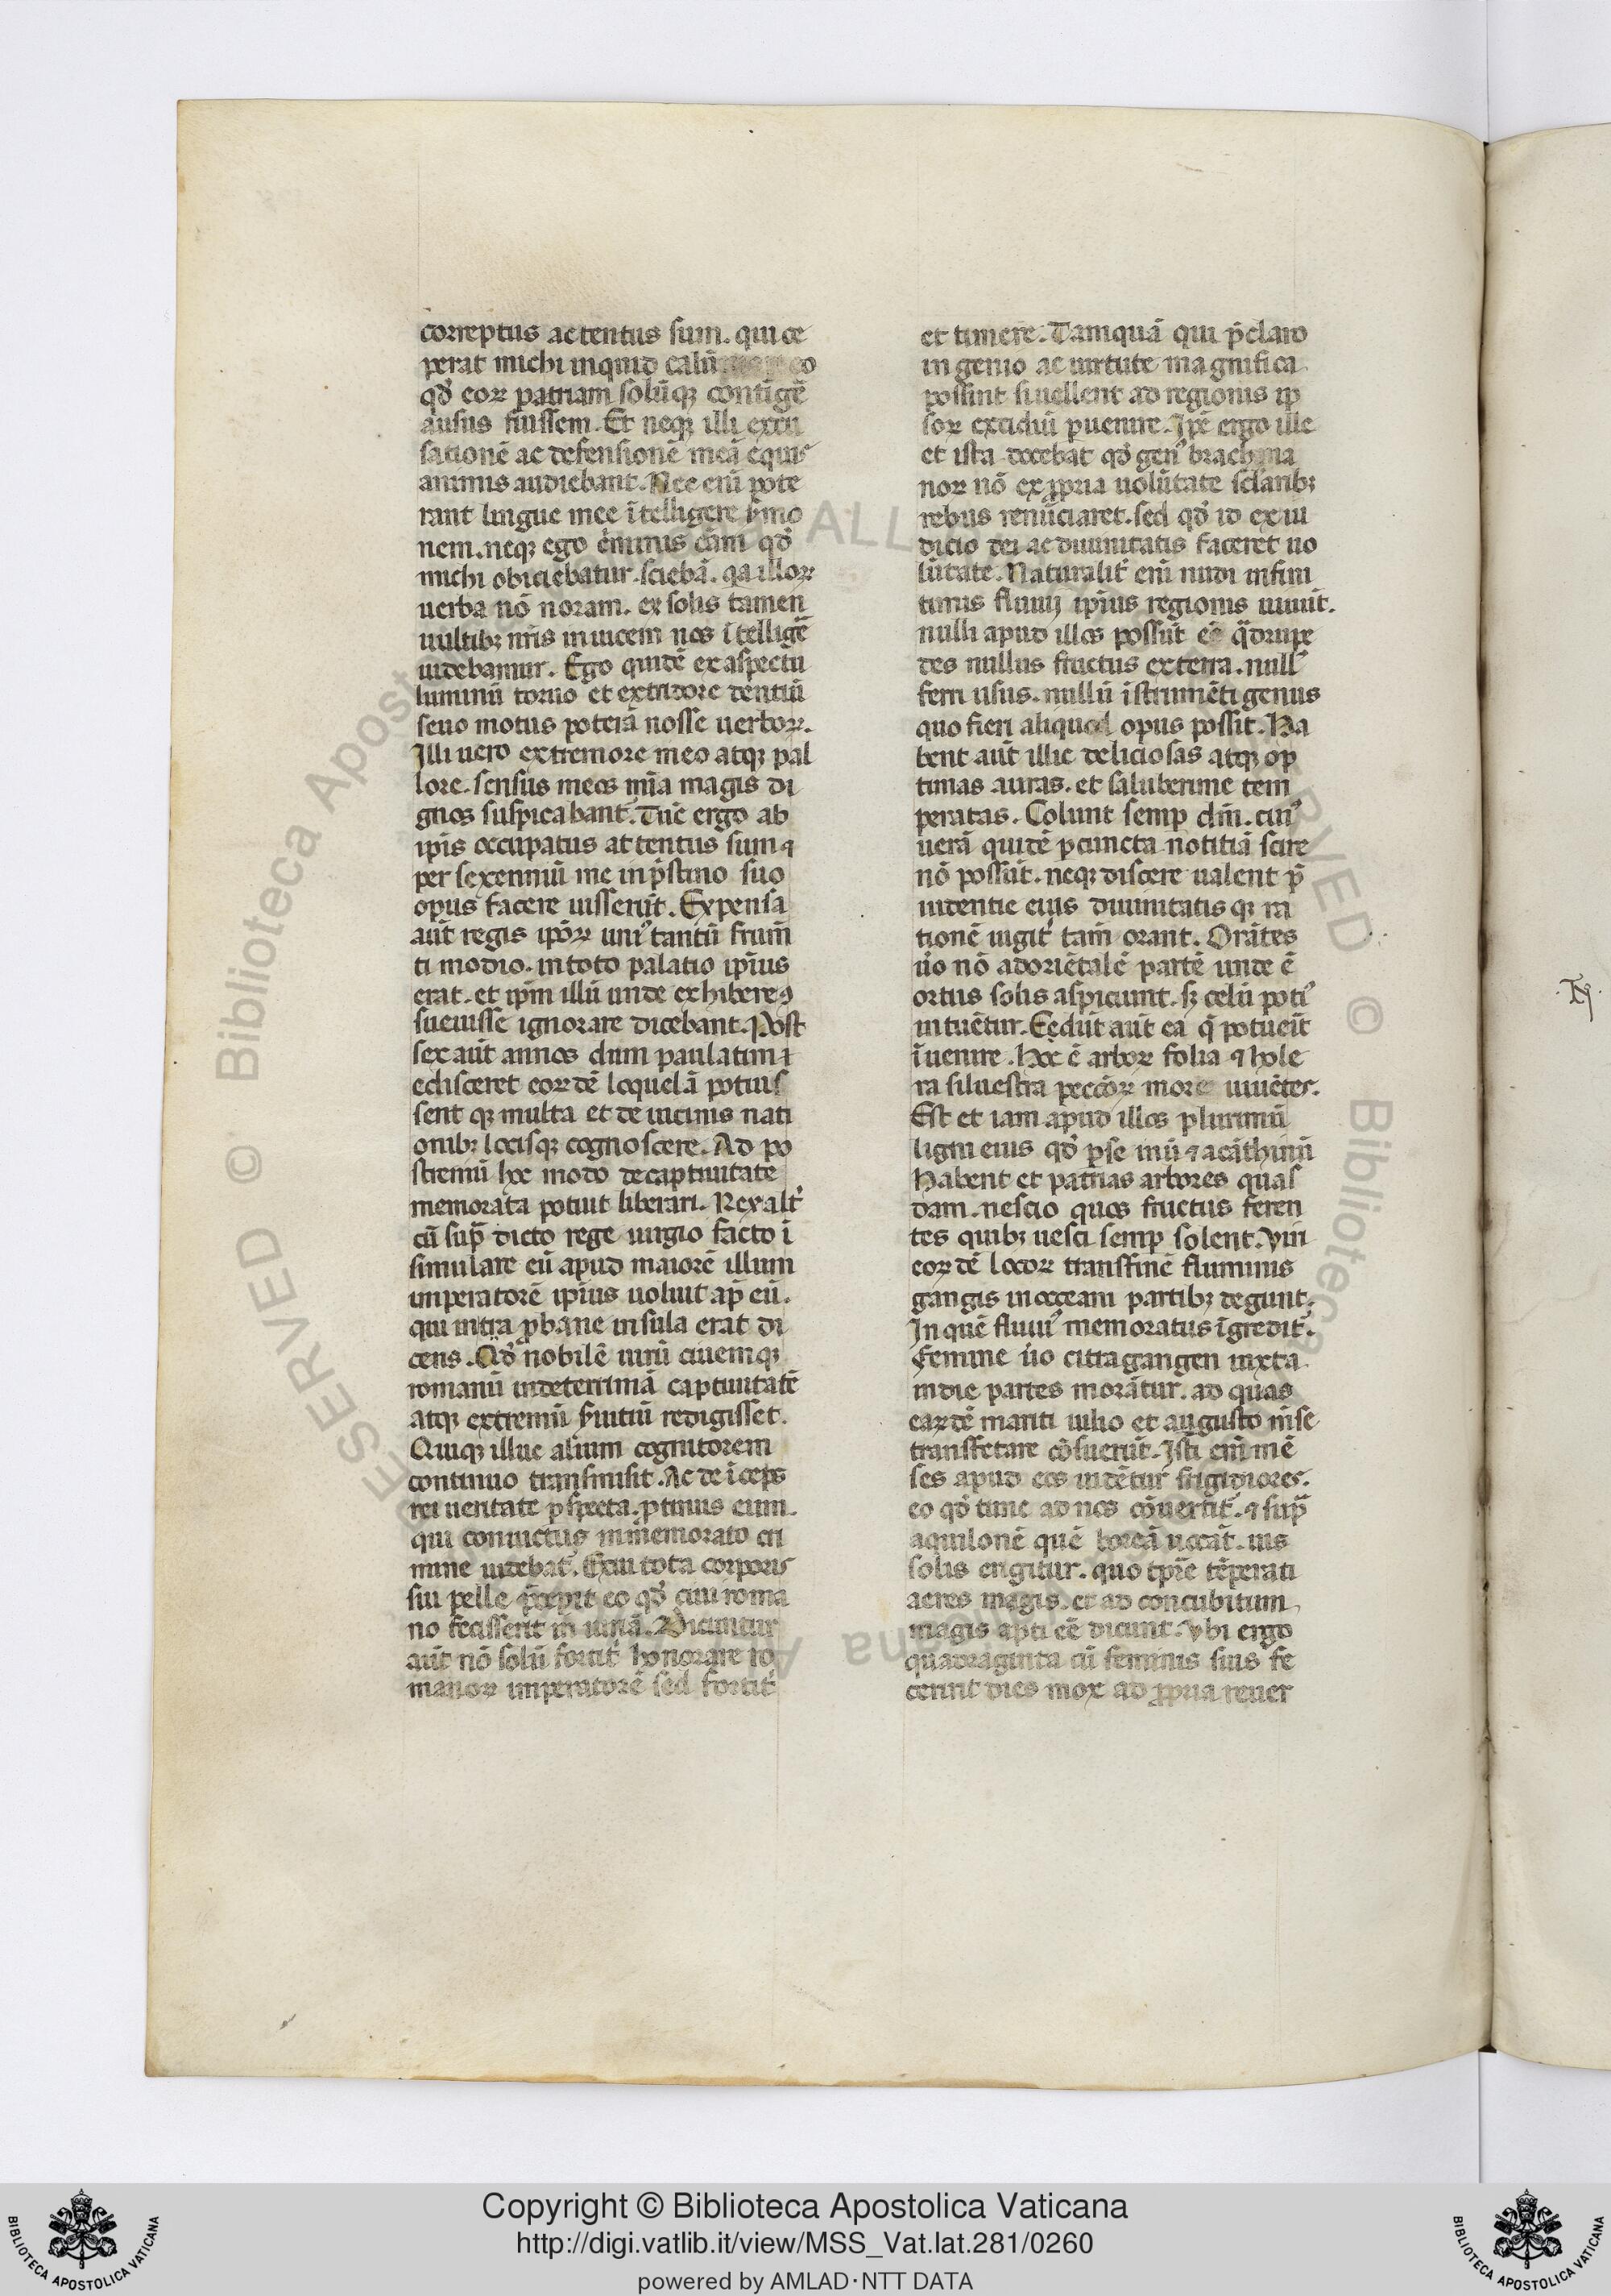 correptus ac tentus sum. qui ce
perat michi inquid calū eo
qđ eoꝝ patriam solūqꝫ contigē
ausus fuissem. Et neqꝫ illi excu
sationē ac defensionē meā equis
animis audiebant. Nec eni pote
rant lingue mee ītelligere ẜmo
nem. neqꝫ ego cām qđ
michi obiciebatur. sciebā. qa illoꝝ
uerba nō noram. ex solis tamen
uultibꝫ nrīs inuicem nos ītelligē
uidebamur. Ego quidē ex aspectu
luminū toruo et extridore dentiū
seuo motus poterā nosse uerboꝝ.
Illi uero extremore meo atqꝫ pal
lore. sensus meos mīa magis di
gnos suspicabant. Tūc ergo ab
ipīs occupatus attentus sum ⁊
per sexenniū me in p̄stino suo
opus facere iusserūt. Expensa
aūt regis ipōꝝ uniꝰ tantū frum̄
ti modio. in toto palatio ipīus
erat. et ipm̄ illū unde exhibere ꝯ
sueuisse ignorare dicebant. Post
sex aūt annos dum paulatim ⁊
edisceret eoꝝdē loquelā potuis
sent qꝫ multa et de uicinis nati
onibꝫ locisqꝫ cognoscere. Ad po
stremū hoc modo decaptiuitate
memorata potuit liberari. Rex alt̓
cū sup̄ dicto rege iurgio facto ī
simulare eū apud maiorē illum
imperatorē ipīus uoluit ap̄ eū.
qui intra ꝓbane insula erat di
cens. Qđ nobilē uirū ciuemqꝫ
romanū indeterrimā captiuitatē
atqꝫ extremū ẜuitiū redigisset.
Quiqꝫ illuc alium cognitorem
continuo transmisit. Ac deīceps
rei ueritate ꝑspecta. ꝓtinus eum.
qui conuictus inmemorato cri
mine uidebat̓. Exui tota corporis
sui pelle p̄cepit eo qđ ciui roma
no fecisserit in iuriā. Dicuntur
aūt nō solū fortit̓ honorare ro
manoꝝ imperatorē sed fortit̓
et timere. Tamquā qui p̄claro
in genio ac uirtute magnifica
possint siuellent ad regionis ip̄
soꝝ excidiū ꝑuenire. Ipē ergo ille
et ista docebat qđ genꝰ brachma
noꝝ nō ex ꝓpria uolūtate sclaribꝫ
rebus renūciaret. sed qđ id ex iu
dicio dei ac diuinitatis faceret uo
lūtate. Naturalit̓ eni nudi infini
timis fluuij ipīus regionis uiuūt.
nulli apud illos possūt eē q̄drupe
des nullus fructus ex terra. nullꝰ
ferri usus. nullū īstrumēti genus
quo fieri aliquod opus possit. Ha
bent aūt illic deliciosas atqꝫ op
timas auras. et saluberrime tem
peratas. Colunt semꝑ dm̄. cuiꝰ
uerā quidē ꝑcuncta notitiā scire
nō possūt. neqꝫ discere ualent p̄
uidentie eius diuinitatis qꝫ ra
tionē iugit̓ tam̄ orant. Orātes
u̓o nō adoriētalē partē unde ē
ortus solis aspiciunt. sꝫ celū potiꝰ
intuētur. Eedūt aūt ea q̄ potueīt
īuenire. Hoc ē arboꝝ folia ⁊ hole
ra siluestra peccoꝝ more uiuētes.
Est et iam apud illos plurimū
ligni eius qđ ꝑse mū ⁊ acāthinū
Habent et patrias arbores quas
dam. nescio quos fructus feren
tes quibꝫ uesci semꝑ solent. Viri
eoꝝdē locoꝝ transfinē fluminis
gangis inoceam partibꝫ degunt.
In quē fluuiꝰ memoratus īgredit̓.
Femine u̓o citragangen iuxta
indie partes morātur. ad quas
eaꝝdē mariti iulio et augusto m̄se
transfretare cōsuerūt. Isti enī mē
ses apud eos uidētur frigidiores.
eo qđ tunc ad nos cōuertit̓. ⁊ sup̄
aquilonē quē boreā uocāt. uis
solis erigitur. quo tp̄re tēperati
aeres magis. et ad concubitum
magis apti eē dicunt. Vbi ergo
quadraginta cū feminis suis fe
cerint dies mox ad ꝓpria reuer
Copyright © Biblioteca Apostolica Vaticana
http://digi.vatlib.it/view/MSS_Vat.lat.281/0260
powered by AMLAD·NTT DATA